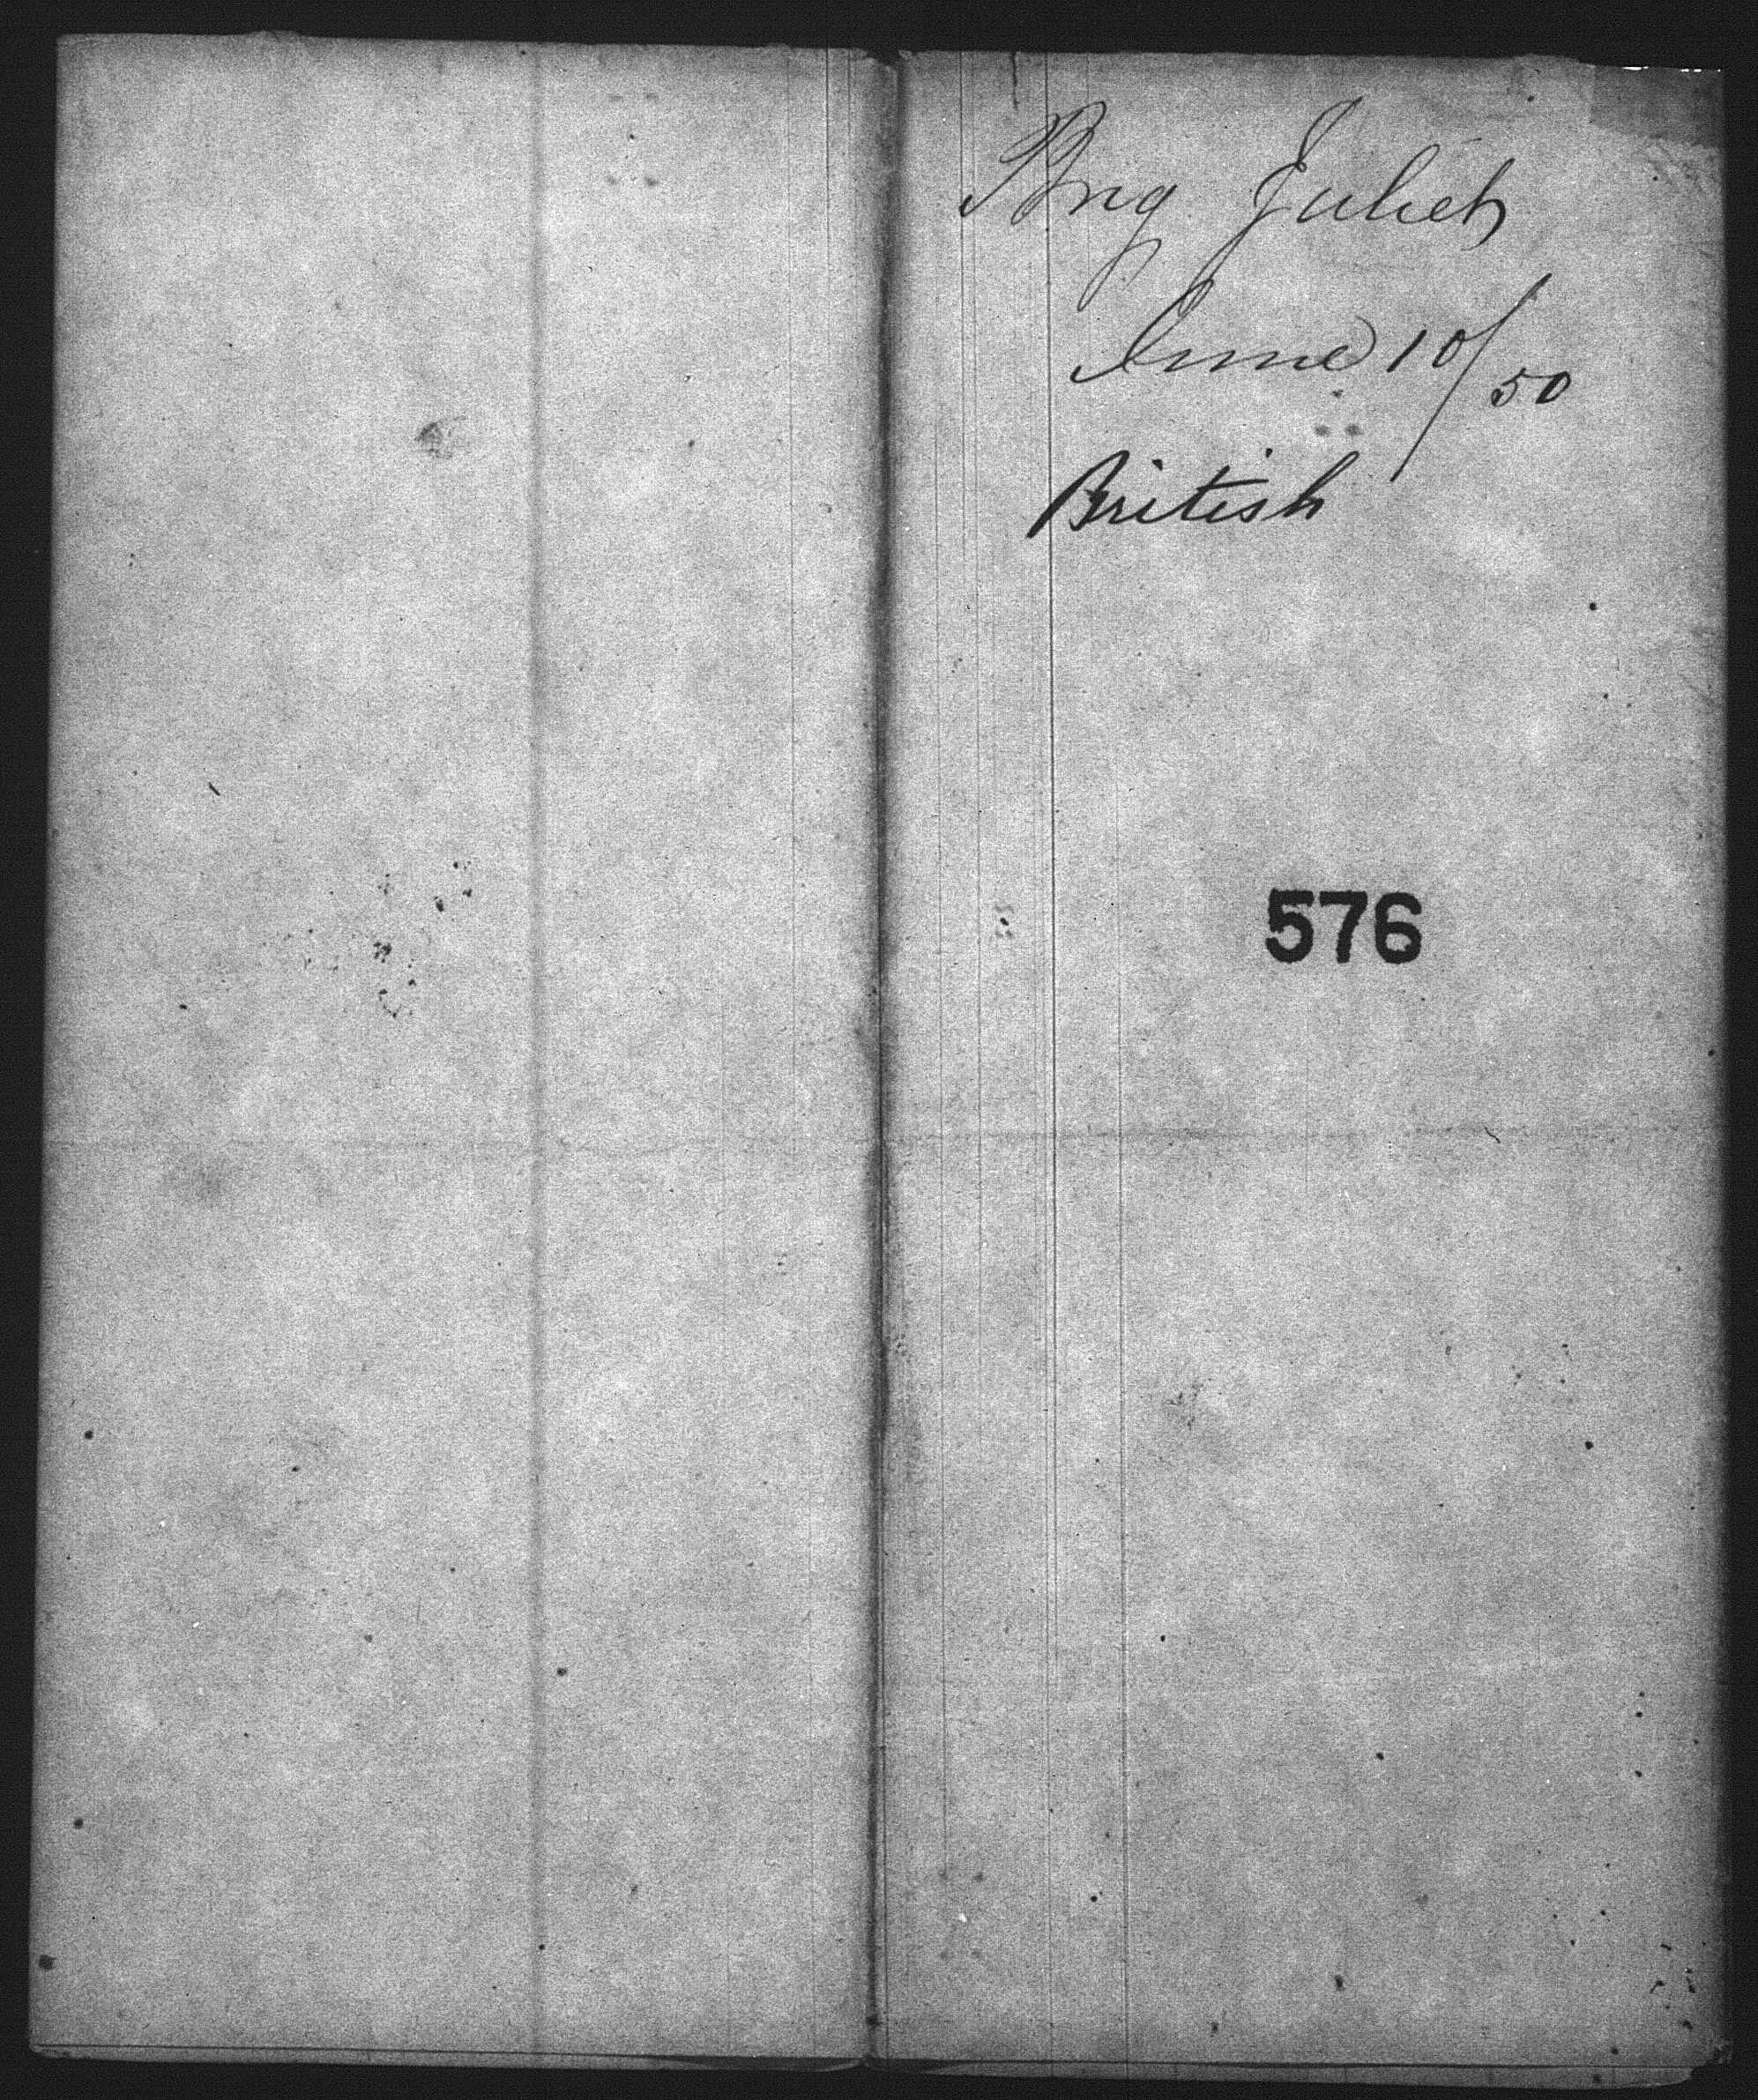 Brig Juliet
June 10/50
British
576